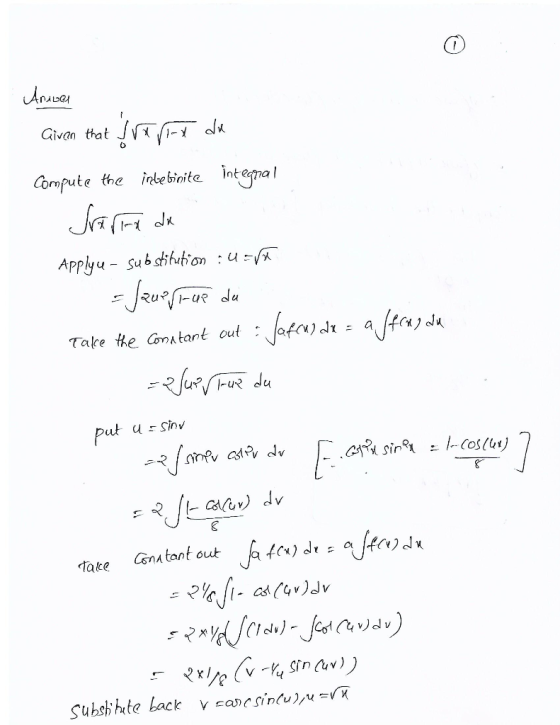 ①
Answer
Given that ∫₀¹ √x √1-x dx
Compute the indebinite integral
∫√x √1-x dx
Apply u - substitution : u = √x
= ∫2u² √1-u² du
Take the constant out : ∫af(x) dx = a ∫f(x) dx
= 2∫u² √1-u² du
put u = sinv
= 2 ∫ sin²v cos²v dv [∵ cos²x sin²x = 1-cos(4x)/8]
= 2 ∫ 1-cos(4v)/8 dv
Take constant out ∫a f(x) dx = a ∫f(x) dx
= 2 1/8 ∫1- cos(4v) dv
= 2×1/8 (∫(1dv) - ∫cos(4v)dv)
= 2×1/8 (v - 1/4 sin(4v))
Substitute back v = arcsin(u), u = √x